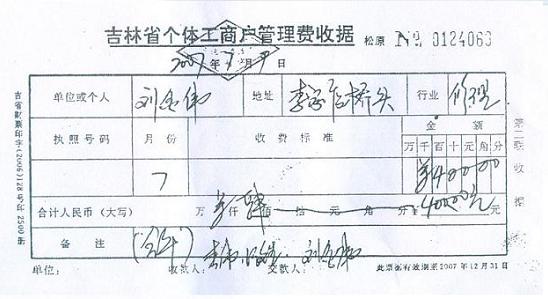 吉林省个体工商户管理费收据 松原 № 0124063
2007年7月9日
单位或个人 刘金伟 地址 桥头 行业 修理
执照号码 月份 收费标准 金额
万千百十元角分
7 ¥400.00
合计人民币（大写） 万仟佰拾元角分 400.00元
备注 （全年）
单位： 收款人： 交款人：刘金伟 此票据有效期至2007年12月31日
吉省财票印字(2006)128号年2500册
第二联收据